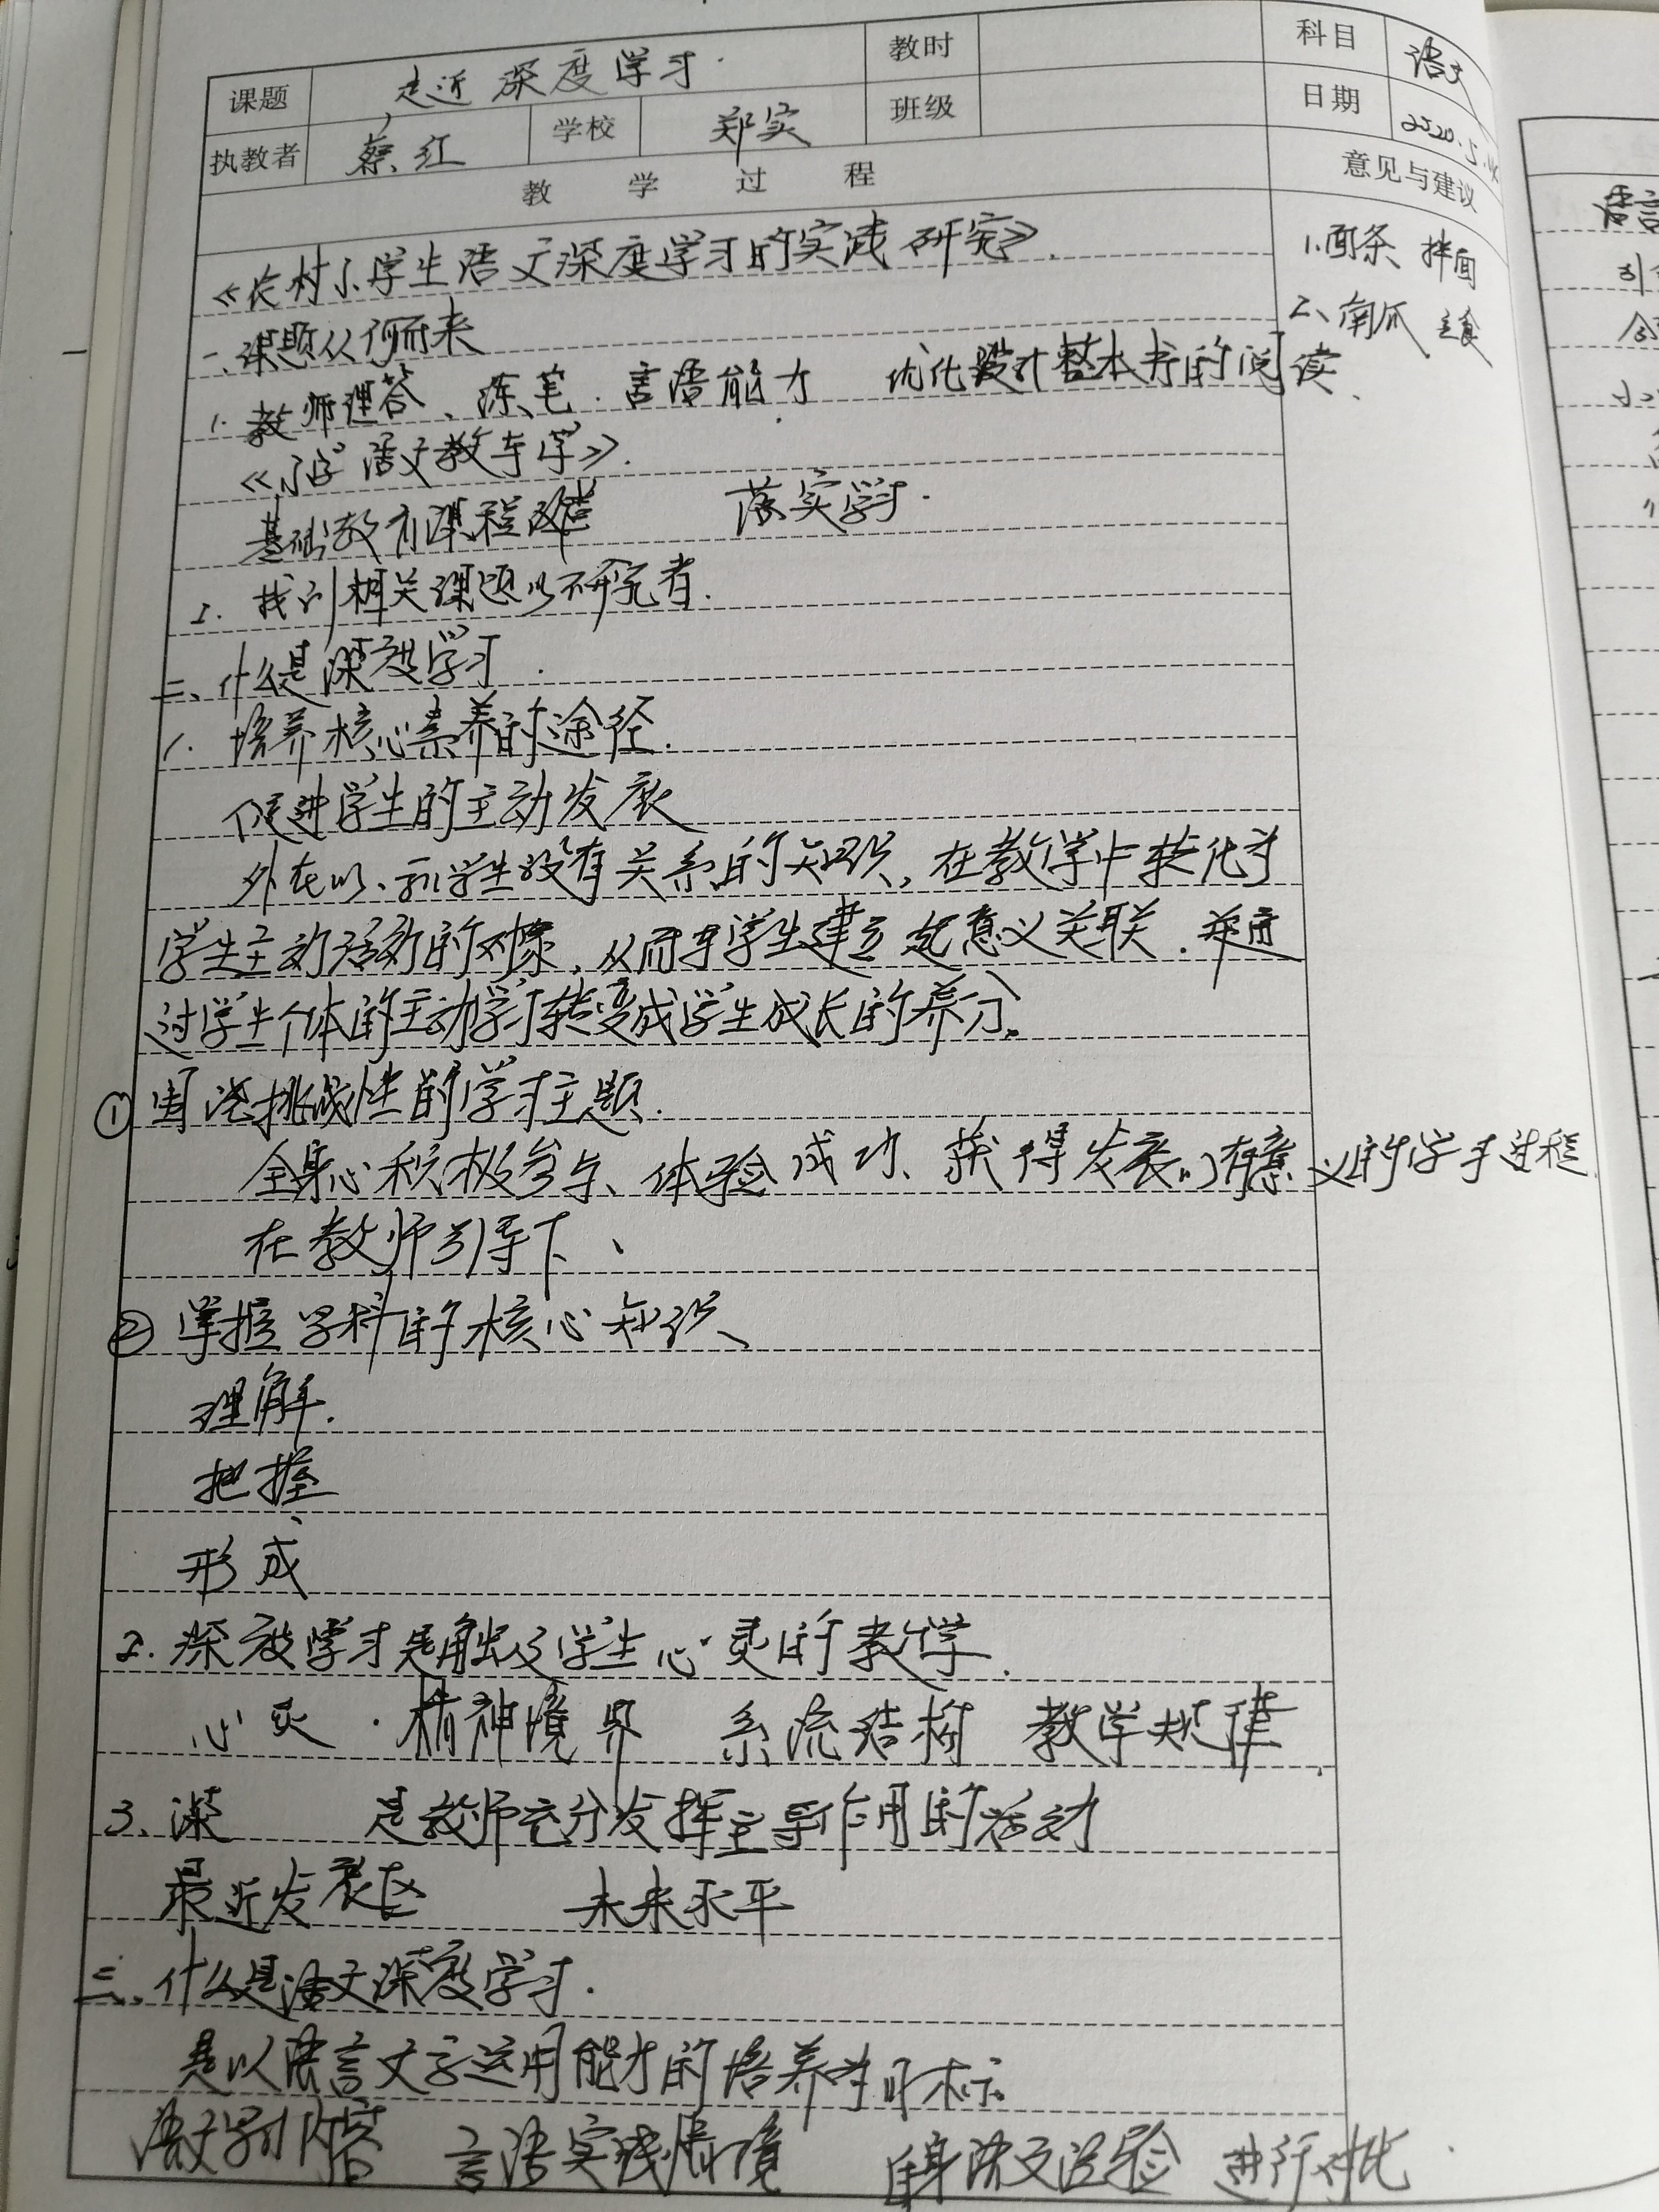 课题 走近深度学习 教时 科目 语文
执教者 蔡红 学校 郑实 班级 日期 2020.5.
教学过程 意见与建议
《农村小学生语文深度学习的实践研究》
1.面条 拌面
2、南瓜 主食
一、课题从何而来
1. 教师理答、练笔.言语能力 优化设计整本书的阅读.
《小学语文教与学》.
基础教育课程改革 落实学习.
2. 找到相关课题的研究者.
二、什么是深度学习.
1. 培养核心素养的途径.
促进学生的主动发展
外在的、和学生没有关系的知识,在教学中转化为
学生主动活动的对象,从而与学生建立起意义关联.并通
过学生个体的主动学习转变成学生成长的养分。
① 挑战性的学习主题.
全身心积极参与、体验成功、获得发展的有意义的学习过程.
在教师引导下、
② 掌握学科的核心知识、
理解.
把握、
形成
2. 深度学习是触及学生心灵的教学.
心灵.精神境界 系统结构 教学规律.
3、深 是教师充分发挥主导作用的活动
最近发展区 未来水平
三、什么是语文深度学习.
是以语言文字运用能力的培养为目标。
语文学习内容 言语实践情境 自身语文经验 进行对比.